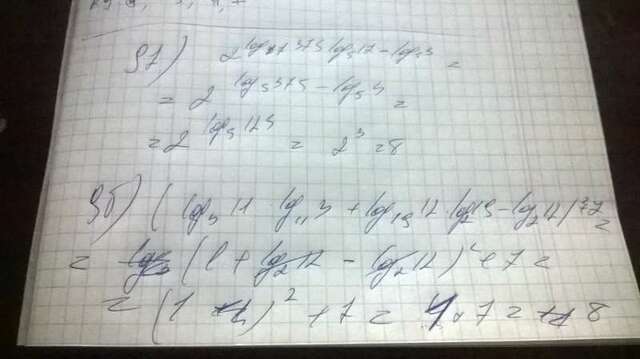 97) 2^(log₁₇375·log₅17 − log₅3) =
= 2^(log₅375 − log₅3) =
= 2^(log₅125) = 2³ = 8
(log₃11 · log₁₁3 + log₁₉12 · log₂19 − log₂12)² + 7 =
= (1 + log₂12 − log₂12)² + 7 =
= (1)² + 7 = 1 + 7 = 8